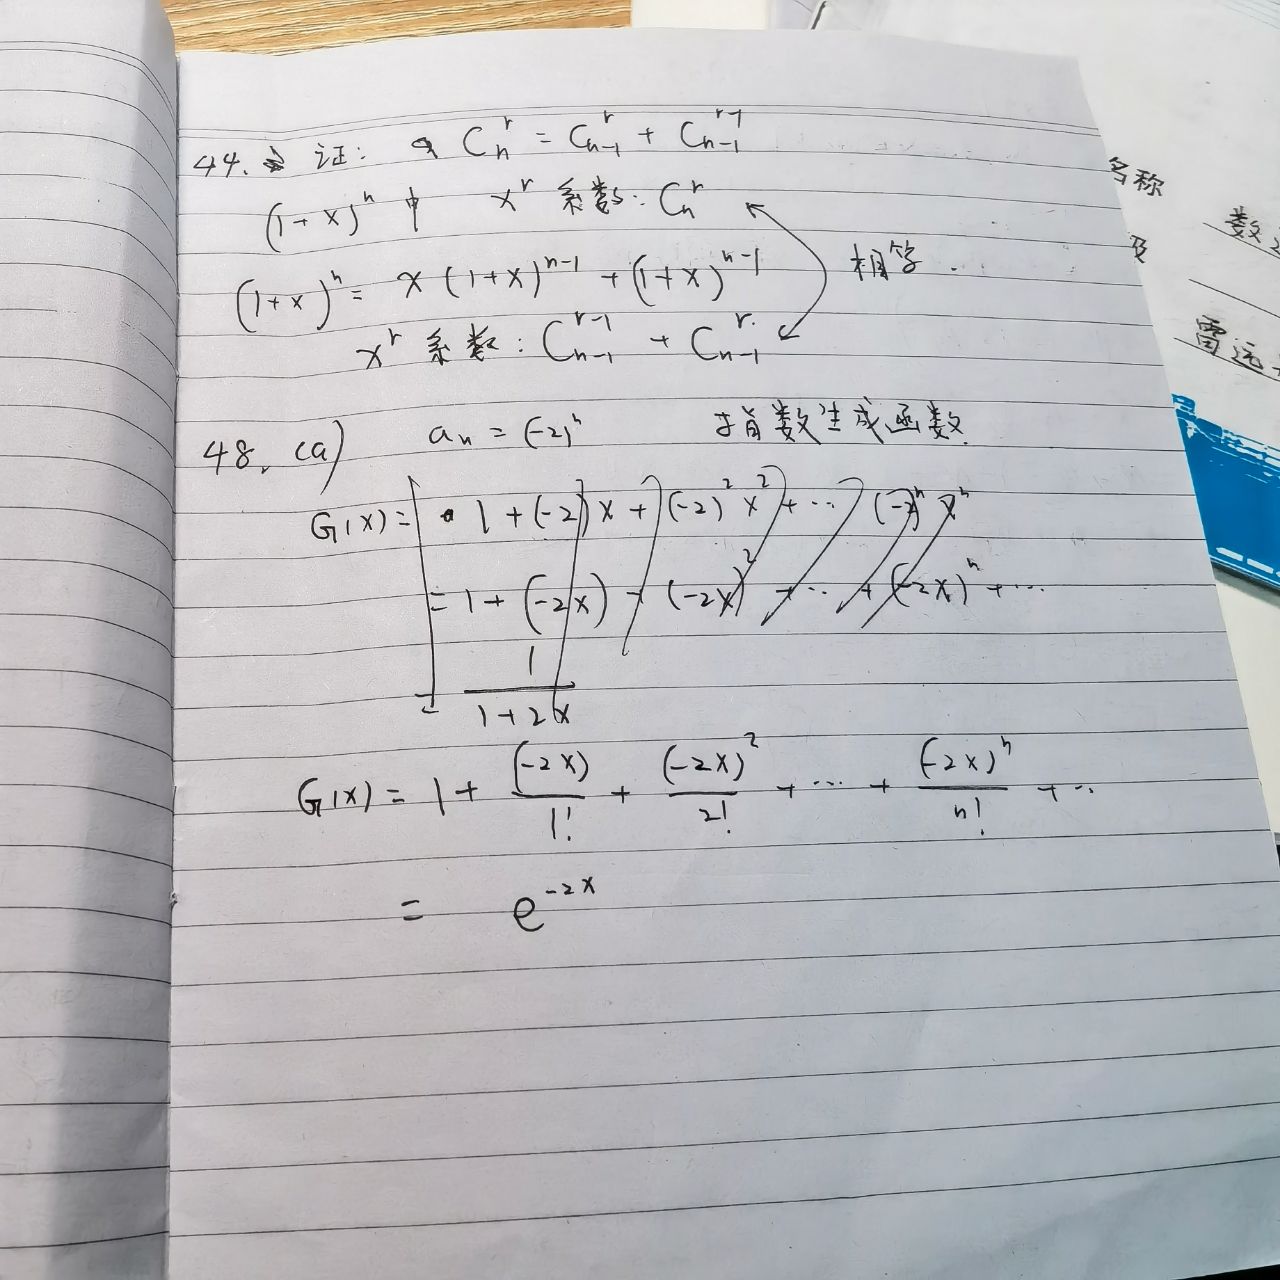 44. 证: C_n^r = C_{n-1}^r + C_{n-1}^{r-1}
(1+x)^n 中 x^r 系数: C_n^r
(1+x)^n = x(1+x)^{n-1} + (1+x)^{n-1} 相等.
x^r 系数: C_{n-1}^{r-1} + C_{n-1}^r
48. (a) a_n = (-2)^n 指数生成函数
G(x) = 1 + (-2)x + (-2)^2 x^2 + ... (-2)^n x^n
= 1 + (-2x) + (-2x)^2 + ... + (-2x)^n + ...
= \frac{1}{1+2x}
G(x) = 1 + \frac{(-2x)}{1!} + \frac{(-2x)^2}{2!} + ... + \frac{(-2x)^n}{n!} + ..
= e^{-2x}
名称
级
雷远